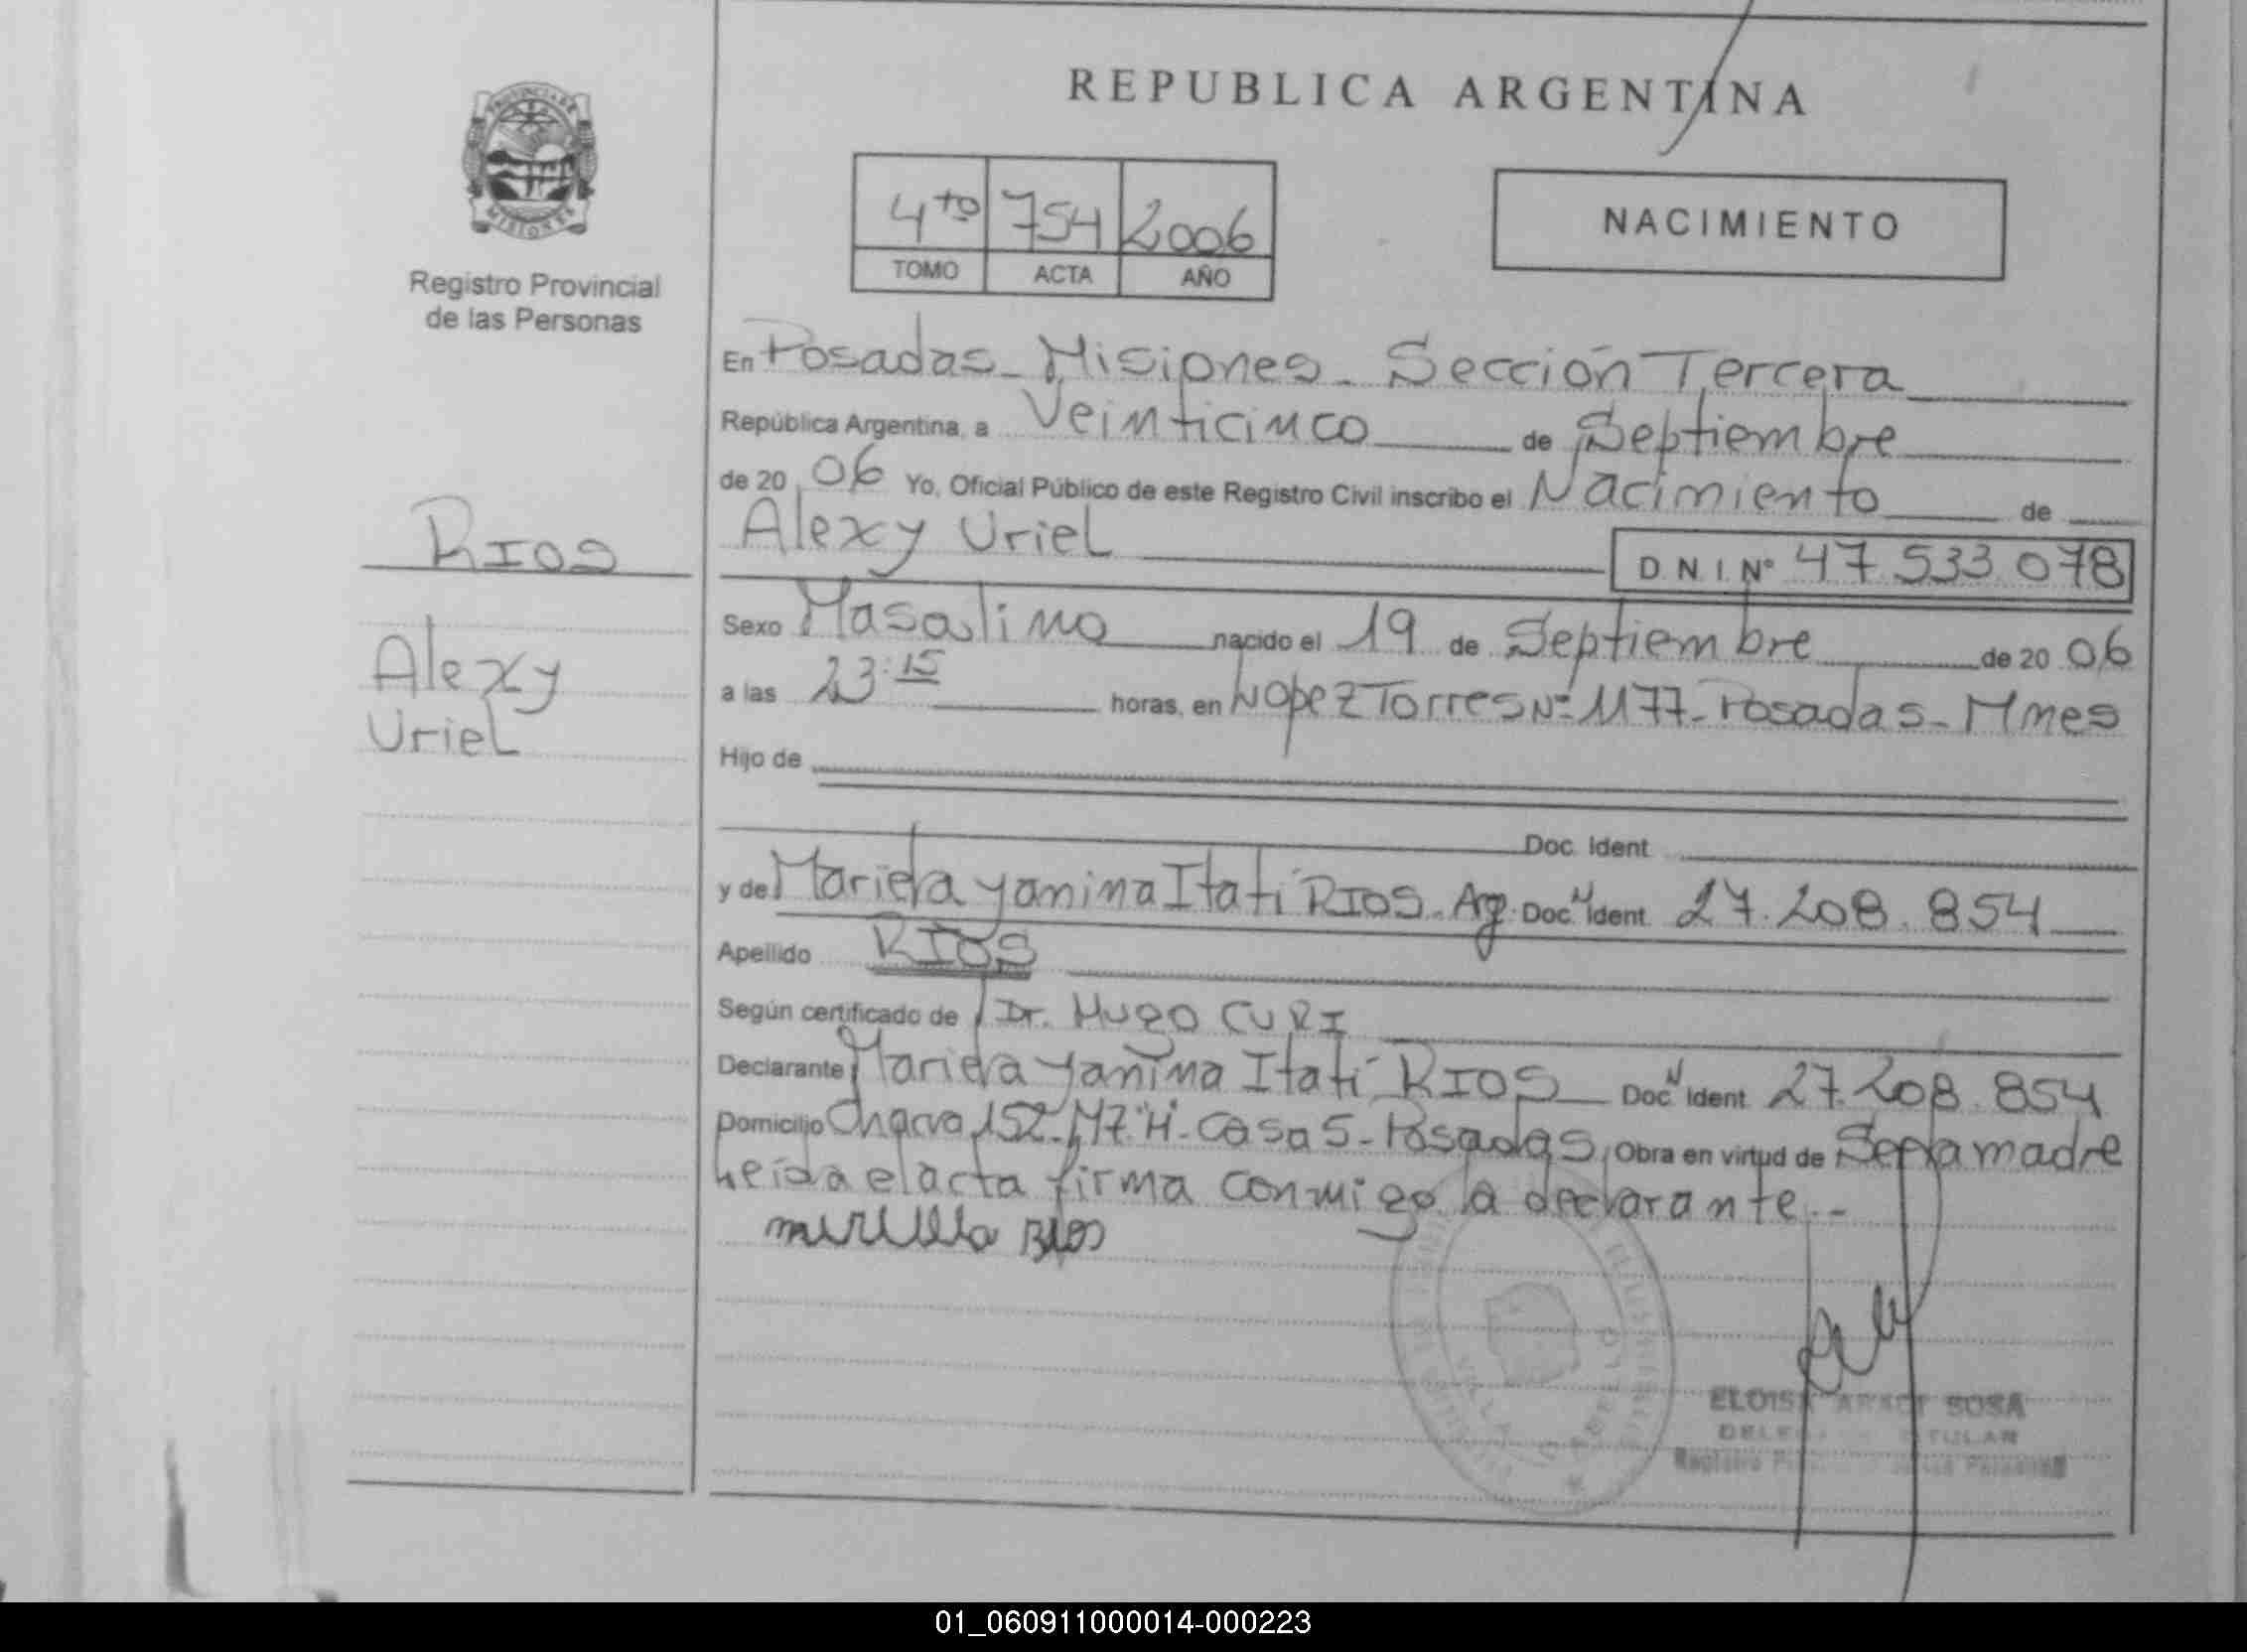 REPUBLICA ARGENTINA
PROVINCIA DE
MISIONES
Registro Provincial
de las Personas
4to 754 2006
TOMO ACTA AÑO
NACIMIENTO
En Posadas - Misiones - Sección Tercera
República Argentina, a Veinticinco de Septiembre
de 20 06 Yo, Oficial Público de este Registro Civil inscribo el Nacimiento de
RIOS
Alexy Uriel
D.N.I. Nº 47 533 078
Sexo Masculino nacido el 19 de Septiembre de 20 06
Alexy
Uriel
a las 23:15 horas, en López Torres Nº 1177 - Posadas - Mnes
Hijo de
Doc. Ident.
y de Mariela Yanina Itatí RIOS - Arg. Doc. N Ident. 27.208.854
Apellido RIOS
Según certificado de Dr. Hugo CURI
Declarante Mariela Yanina Itatí RIOS Doc. N Ident. 27.208.854
Domicilio Chacra 152 - Mz "H" - Casa 5 - Posadas Obra en virtud de Ser la madre
Leída el acta firma conmigo la declarante.-
Rios
VILLA CABELLO
ELOISA SOSA
TITULAR
Registro
01_060911000014-000223